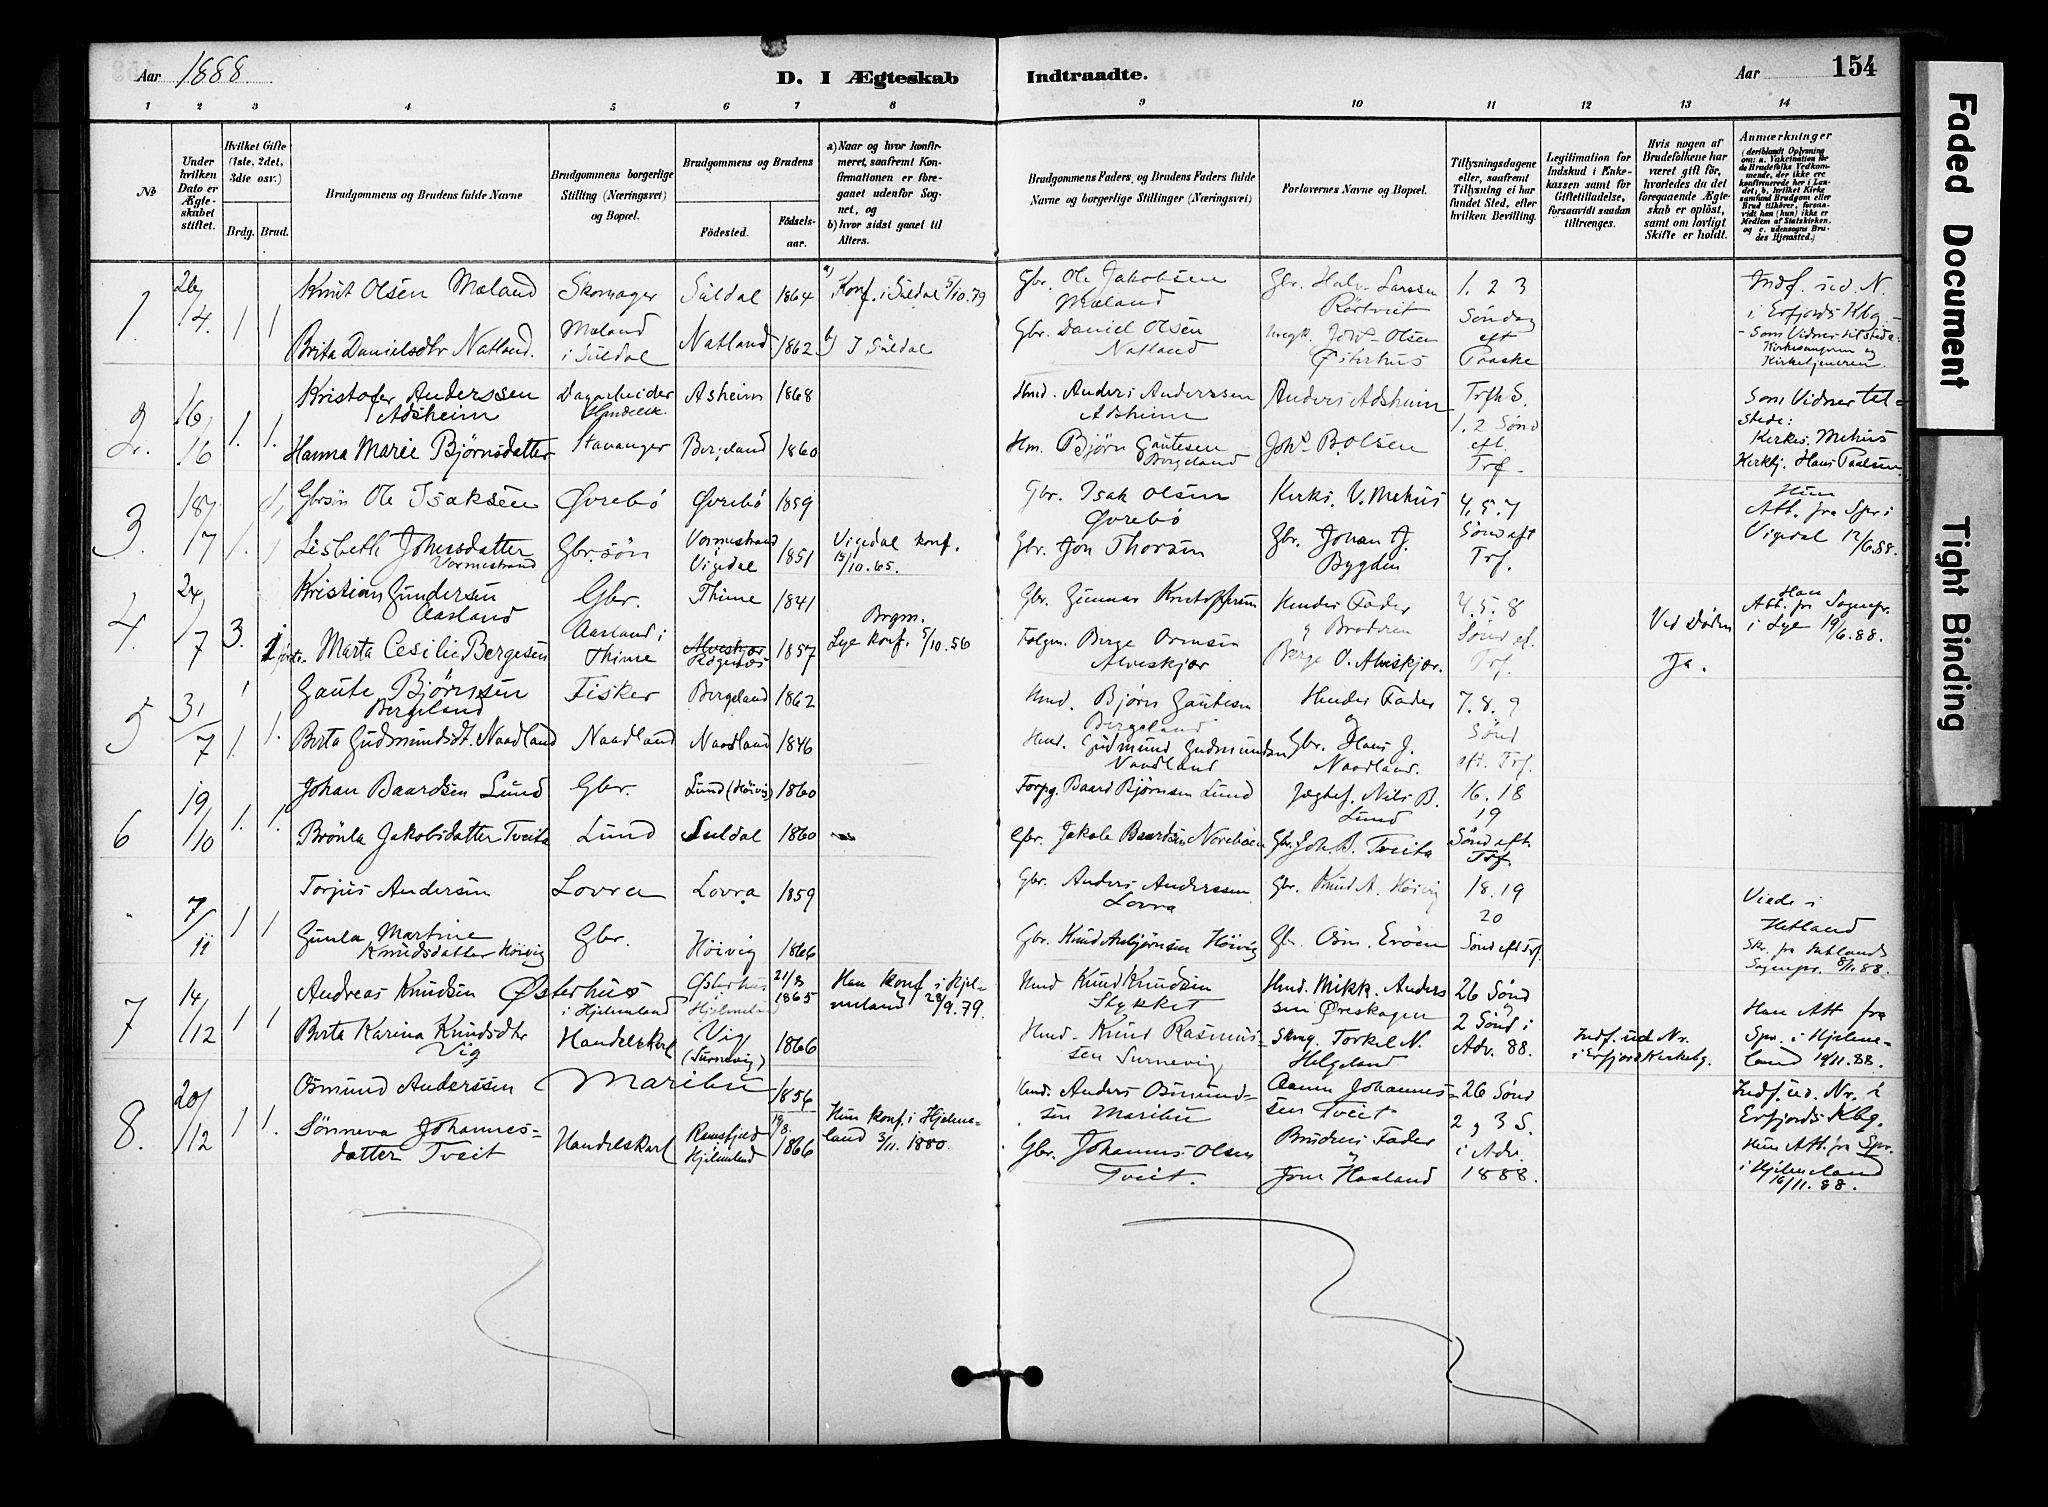 Aar 1888.
D. I Ægteskab Indtraadte.
Aar
154
1 2 3 4 5 6 7 8 9 10 11 12 13 14
№
Under hvilken Dato er Ægteskabet stiftet.
Hvilket Gifte (1ste, 2det, 3die osv.)
Brdg. Brud.
Brudgommens og Brudens fulde Navne
Brudgommens borgerlige Stilling (Næringsvei) og Bopæl.
Brudgommens og Brudens
Födested. Födselsaar.
a) Naar og hvor konfirmeret, saafremt Konfirmationen er foregaaet udenfor Sognet, og
b) hvor sidst gaaet til Alters.
Brudgommens Faders, og Brudens Faders fulde Navne og borgerlige Stillinger (Næringsvei)
Forlovernes Navne og Bopæl.
Tillysningsdagene eller, saafremt Tillysning ei har fundet Sted, efter hvilken Bevilling.
Legitimation for Indskud i Enkekassen samt for Giftetilladelse, forsaavidt saadan tiltrænges.
Hvis nogen af Brudefolkene har været gift för, hvorledes da det foregaaende Ægteskab er oplöst, samt om lovligt Skifte er holdt.
Anmærkninger
1. 26/4. 1 1 Knut Olsen Mæland Skomager Suldal 1864 a) Konf. i Suldal 5/10.79 Gbr. Ole Jakobsen Mæland Gbr. Halv. Larssen 1. 2 3 Indf. ud. N. i Erfjords Kbg.
Brita Danielsdtr Natland. Mæland i Suldal Natland 1862 b) I Suldal Gbr. Daniel Olsen Natland Olsen Østerhus Søndag eft Paaske Som Vidner tilstede: Kirkesangeren og Kirketjeneren.
2. 16/16 1. 1. Kristofer Anderssen Adsheim Dagarbeider Asheim 1868 Hmd. Anders Anderssen Adsheim Anders Adsheim Trfh S. 1. 2 Sønd eft. Trf. Som Vidner tilstede:
Hanna Marie Bjørnsdatter Stavanger Bergeland 1860 Hm. Bjørn Gautesen Bergeland Joh. B. Olsen Kirkes. Mehus Kirketj. Hans Paalsen
3. 18/7 1. 1 Gbrsøn Ole Isaksen Øvrebó Øvrebó 1859 Gbr. Isak Olsen Øvrebó Kirks. V. Mehus 4. 5. 7 Hun Att. fra Spr i Vigedal 12/6.88.
Lisbeth Johnsdatter Vormestrand Gbr.søn Vormestrand Vigedal 1851 Vigedal konf. 15/10.65. Gbr. Jon Thorsen Gbr. Johan J. Bygden Sønd eft Trf.
4. 24/7 3. 1 første Kristian Gundersen Aasland Gbr. Thime 1841 Brgm. Lye konf. 5/10.56 Gbr. Gunnar Hendes Fader og Broderen 4. 5. 8 Ved Døden Han Att. fr. Sognepr. i Lye 19/6.88.
Marta Cecilie Bergesen Aasland i Thime Alveskjær 1857 Berge Ormsen Alveskjær Berge O. Alveskjær. Sønd ef. Trf. Ja.
5 31/7 1 1. Gaute Bjørnsen Bergeland Fisker Bergeland 1862 Hmd. Bjørn Gautesen Bergeland Hendes Fader og 7. 8. 9
Berta Gudmundsdt. Naadland Naadland Naadland 1846 Hmd. Gudmund Gudmundsen Naadland Gbr. Hans J. Naadland. Sønd eft. Trf.
6 19/10 1. 1. Johan Baardsen Lund Gbr. Lund (Höivig) 1860 Forpg. Baard Bjørnsen Lund Nils B. Lund 16. 18 19
Jakobsdatter Tveita Lund Suldal 1860 Gbr. Jakob Baardsen Gbr. Joh. B. Tveita Sønd eft. Trf.
" 7/11 1 1 Torjus Andersen Lovra Lovra 1859 Gbr. Anders Anderssen Lovra Gbr. Knud A. Höivig 18. 19 20 Viede i Hetland
Gunla Martine Knudsdatter Höivig Gbr. Höivig 1866 Gbr. Knud Asbjørnsen Höivig Gbr. Osm. Eröen Sønd eft Trf. Sk. fr. Hetlands Sognepr. 8/11.88.
7 14/12 1 1 Andreas Knudsen Østerhus i Hjelmeland Østerhus Hjelmeland 21/8 1865 Han konf i Hjelmeland 28/9.79. Hmd Knud Knudsen Stykket Hmd. Mikk. Anderssen Øreskagen 26 Sønd og 2 Sønd i Adv. 88. Han Att fra Spr. i Hjelmeland 19/11.88.
Berta Karina Knudsdtr Vig Handelskarl Vig (Surnevig) 1866 Hmd. Knud Rasmussen Surnevig Torkel N. Helgeland Indf. ud Nr. i Erfjord Kirkebg.
8. 20/12 1 1. Osmund Anderssen Maribu 1856 Hmd. Anders Osmundsen Maribu Johannessen Tveit 26 Sønd 2 og 3 S. i Adv. 1888. Indf. ud. Nr. i Erfjords Kbg.
Sønneva Johannesdatter Tveit Handelskarl Ramsfjeld Hjelmeland 19/8. 1866 Hun konf. i Hjelmeland 3/11. 1880. Gbr. Johannes Olsen Tveit. Brudens Fader og Haaland Hun Att. fra Spr. i Hjelmeland 16/11.88.
Faded Document
Tight Binding